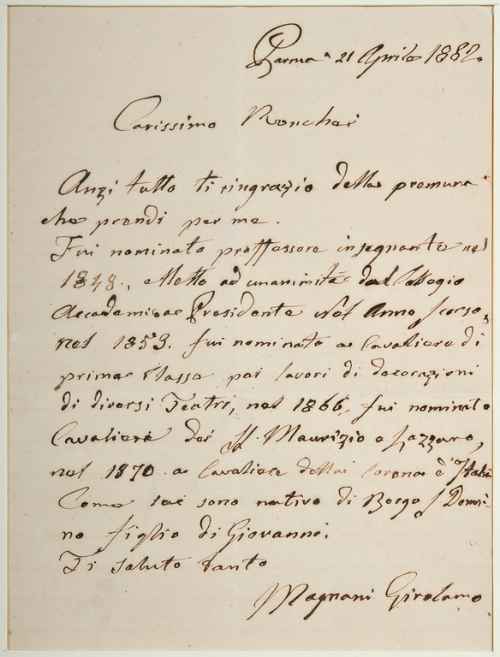 Parma 21 Aprile 1882.
Carissimo Ronchei
Anzi tutto ti ringrazio della premura
che prendi per me.
Fui nominato proffessore insegnante nel
1848., eletto ad unanimità dal Collegio
Accademico Presidente nel Anno scorso,
nel 1853. fui nominato a Cavaliere di
prima Classe pei lavori di decorazioni
di diversi Teatri, nel 1866, fui nominato
Cavaliere dei SS. Maurizio e Lazzaro,
nel 1870. a Cavaliere della Corona d'Italia
Come sai sono nativo di Borgo S Donni
no figlio di Giovanni.
Ti saluto tanto
Magnani Girolamo